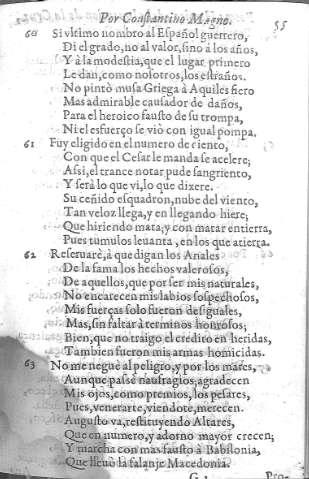 Por Constantino Magno. 55
60 Si vltimo nombro al Español guerrero,
Di el grado, no al valor, sino à los años,
Y à la modestia, que el lugar primero
Le dan, como nosotros, los estraños.
No pintò musa Griega à Aquiles fiero
Mas admirable causador de daños,
Para el heroico fausto de su trompa,
Ni el esfuerço se viò con igual pompa.
61 Fuy eligido en el numero de ciento,
Con que el Cesar le manda se acelere;
Assi, el trance notar pude sangriento,
Y serà lo que vi, lo que dixere.
Su ceñido esquadron, nube del viento,
Tan veloz llega, y en llegando hiere;
Que hiriendo mata, y con matar entierra,
Pues tumulos leuanta, en los que atierra.
62 Reseruarè, à que digan los Anales
De la fama los hechos valerosos,
De aquellos, que por ser mis naturales,
No encarecen mis labios sospechosos,
Mis fuerças solo fueron desiguales,
Mas, sin faltar à terminos honrosos;
Bien, que no traigo el credito en heridas,
Tambien fueron mis armas homicidas.
63 No me neguè al peligro, y por los mares,
Aunque passè naufragios, agradecen
Mis ojos, como premios, los pesares,
Pues, venerarte, viendote, merecen.
Augusto va, restituyendo Altares,
Que en numero, y adorno mayor crecen;
Y marcha con mas fausto à Babilonia,
Que lleuò la falanje Macedonia.